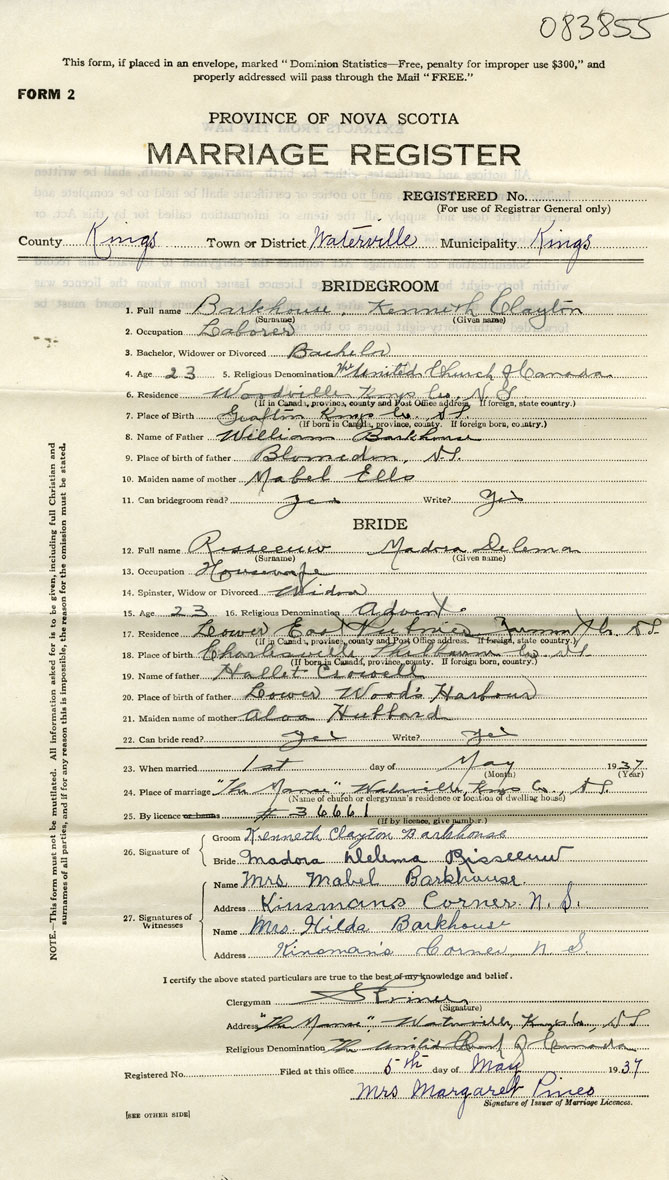 083855
This form, if placed in an envelope, marked "Dominion Statistics—Free, penalty for improper use $300," and
properly addressed will pass through the Mail "FREE."
FORM 2
PROVINCE OF NOVA SCOTIA
MARRIAGE REGISTER
REGISTERED No.
(For use of Registrar General only)
County Kings Town or District Waterville Municipality Kings
BRIDEGROOM
1. Full name Barkhouse, Kenneth Clayton
(Surname) (Given name)
2. Occupation Laborer
3. Bachelor, Widower or Divorced Bachelor
4. Age 23 5. Religious Denomination The United Church of Canada
6. Residence Woodville Kings Co., N.S.
(If in Canada, province, county and Post Office address. If foreign, state country.)
7. Place of Birth Grafton Kings Co. N.S.
(If born in Canada, province, county. If foreign born, country.)
8. Name of Father William Barkhouse
9. Place of birth of father Blomedon, N.S.
10. Maiden name of mother Mabel Ells
11. Can bridegroom read? Yes Write? Yes
BRIDE
12. Full name Risseeuw Madora Delema
(Surname) (Given name)
13. Occupation Housewife
14. Spinster, Widow or Divorced Widow
15. Age 23 16. Religious Denomination Advent
17. Residence Lower East Pubnico Yarmouth Co. N.S
(If in Canada, province, county and Post Office address. If foreign, state country.)
18. Place of birth Charlesville Shelburne Co., N.S.
(If born in Canada, province, county. If foreign born, country.)
19. Name of father Hallet Crowell
20. Place of birth of father Lower Wood's Harbour
21. Maiden name of mother Alva Hubbard
22. Can bride read? Yes Write? Yes
23. When married 1st day of May 1937
(Month) (Year)
24. Place of marriage "The Manse", Waterville, Kings Co., N.S.
(Name of church or clergyman's residence or location of dwelling house)
25. By licence or banns # 36661
(If by licence, give number.)
26. Signature of
Groom Kenneth Clayton Barkhouse
Bride Madora Delema Risseeuw
27. Signatures of Witnesses
Name Mrs Mabel Barkhouse.
Address Kinsmans Corner N. S.
Name Mrs. Hilda Barkhouse
Address Kinsman's Corner, N. S.
I certify the above stated particulars are true to the best of my knowledge and belief.
Clergyman
(Signature)
Address "The Manse", Waterville, Kings Co., N.S
Religious Denomination The United Church of Canada
Registered No. Filed at this office 5th day of May 1937
Mrs Margaret Pineo
Signature of Issuer of Marriage Licences.
[SEE OTHER SIDE]
NOTE.—This form must not be mutilated. All information asked for is to be given, including full Christian and
surnames of all parties, and if for any reason this is impossible, the reason for the omission must be stated.